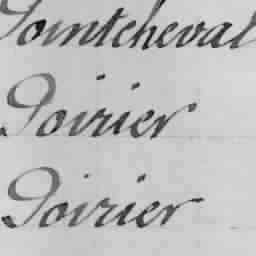 Pointcheval
Poirier
Poirier